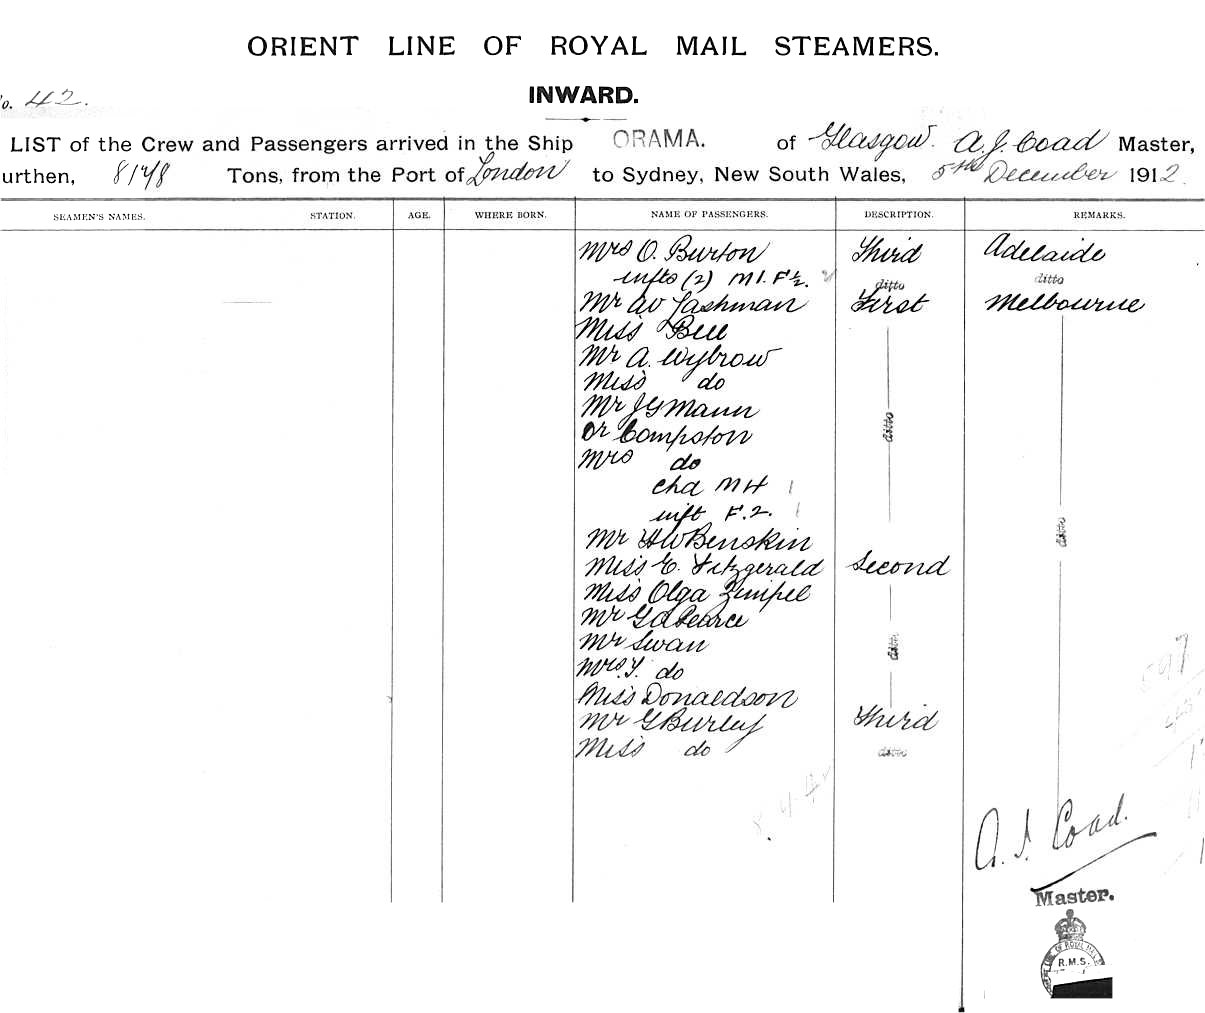 ORIENT LINE OF ROYAL MAIL STEAMERS.
No. 42.
INWARD.
LIST of the Crew and Passengers arrived in the Ship ORAMA. of Glasgow. A.J. Coad Master,
urthen, 8178 Tons, from the Port of London to Sydney, New South Wales, 5th December 1912.
SEAMEN'S NAMES. STATION. AGE. WHERE BORN. NAME OF PASSENGERS. DESCRIPTION. REMARKS.
Mrs O. Burton Third Adelaide
infts (2) M1. F½. ditto ditto
Mr W Lashman First Melbourne
Miss Bell
Mr A. Wybrow
Miss do
Mr JG Mann
ditto
Dr Compston
Mrs do
Chd M4 1
inft F.2. 1
ditto
Mr HW Benskin
Miss E. Fitzgerald Second
Miss Olga Zimpel
Mr Gd Pearce
Mr Swan
ditto
Mrs. Y. do
Miss Donaldson
Mr G Burley Third
Miss do ditto
A. J. Coad.
Master.
LINE OF ROYAL MAIL
R.M.S.